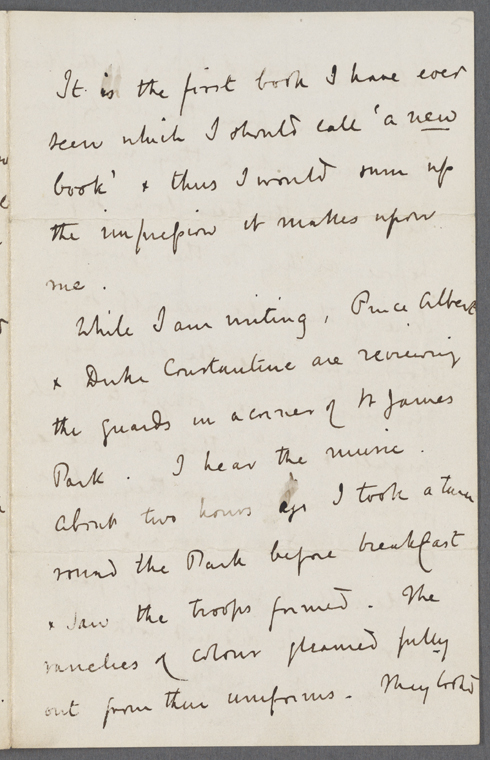 It is the first book I have ever
seen which I should call 'a new
book' & thus I would sum up
the impression it makes upon
me.
While I am writing, Prince Albert
& Duke Constantine are reviewing
the guards in a corner of St James
Park. I hear the music.
About two hours ago I took a turn
round the Park before breakfast
& saw the troops formed. The
varieties of colour gleamed fully
out from their uniforms. They looked